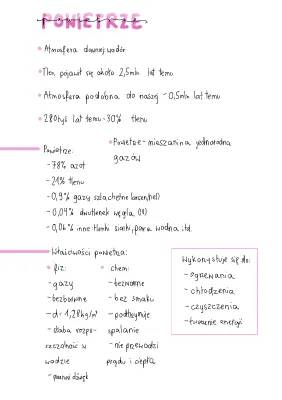 POWIETRZE
• Atmosfera dawniej wodór
• Tlen pojawił się około 2,5mln lat temu
• Atmosfera podobna do naszej ~0,5mln lat temu
• 280tyś lat temu - 30% tlenu
• Powietrze - mieszanina jednorodna
gazów
Powietrze:
- 78% azot
- 21% tlenu
- 0,9% gazy szlachetne
- 0,04% dwutlenek węgla
- 0,06% inne: tlenki siarki, para wodna itd.
Właściwości powietrza:
• fiz:
- gazy
- bezbarwne
- d=1,28kg/m³
- słaba rozpu-
szczalność w
wodzie
- przenosi dźwięk
• chem:
- bezwonne
- bez smaku
- podtrzymuje
spalanie
- nie przewodzi
prądu i ciepła
Wykorzystuje się do:
- ogrzewania
- chłodzenia
- czyszczenia
- tworzenie energii